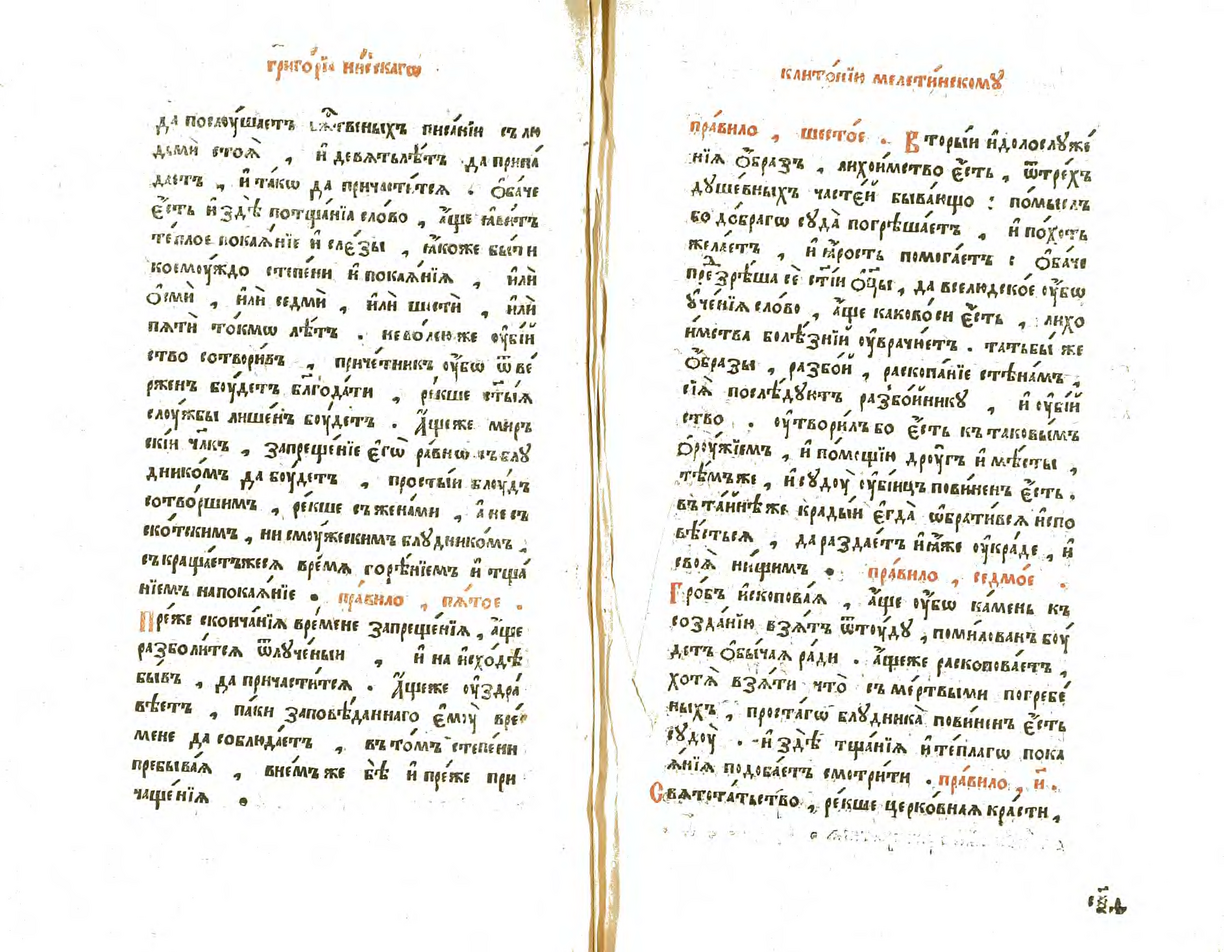 григо́рїа ни́сскагѡ
да послꙋ́шаетъ бж҃ственыхъ писа́нїи съ лю
дьмѝ стоѧ̀ , и҆ де́вѧтьлѣ́тъ да припа́
даетъ , и҆ та́кѡ да причасти́тсѧ . ѻ҆ба́че
є҆́сть и҆ здѣ̀ потща́нїѧ сло́во , а҆́ще ꙗ҆ви́тъ
те́плое покаѧ́нїе и҆ сле́зы , ꙗ҆́коже бы́ти
коемꙋ́ждо степе́ни и҆ покаѧ́нїѧ , и҆лѝ
ѻ҆смѝ , и҆лѝ седмѝ , и҆лѝ шестѝ , и҆лѝ
пѧтѝ то́кмѡ лѣ́тъ . нево́лею же ᲂу҆бі́й
ство сотвори́въ , приче́тникъ ᲂу҆́бѡ ѿве́
рженъ бꙋ́детъ блг҃ода́ти , ре́кше ст҃ы́ѧ
слꙋ́жбы лише́нъ бꙋ́детъ . а҆́щеже ми́р
скїй чл҃къ , запреще́нїе є҆гѡ̀ ра́внѡ съ блꙋ
днико́мъ да бꙋ́детъ , просты́й блꙋ́дъ
сотво́ршимъ , ре́кше съ жена́ми , а҆ не съ
ско́тскимъ , ни смꙋ́жескимъ блꙋднико́мъ ,
съкраща́етъжесѧ вре́мѧ горѣ́нїемъ и҆ тща́
нїемъ на покаѧ́нїе . пра́вило , пѧ́тое .
Пре́же сконча́нїѧ вре́мене запреще́нїѧ , а҆́ще
разболи́тсѧ ѿлꙋ́ченыи , и҆ на и҆схо́дѣ
бы́въ , да причасти́тсѧ . а҆́щеже ᲂу҆здра́
вѣетъ , па́ки заповѣ́даннаго є҆мꙋ̀ вре́
мене да соблюда́етъ , въ то́мъ степе́ни
пребыва́ѧ , вне́мъ же бѣ̀ и҆ пре́же при
чаще́нїѧ .
к̾антѡ́нїю мелети́нскомꙋ
пра́вило , шесто́е . Вторы́и и҆долослꙋже́
нїѧ ѻ҆́бразъ , лихои́мство є҆́сть , ѿ тре́хъ
дꙋше́вныхъ часте́й быва́ющо : по́мыслъ
бо до́браго сꙋда̀ погрѣша́етъ , и҆ по́хоть
жела́етъ , и҆ ꙗ҆́рость помога́етъ : ѻ҆ба́че
презрѣ́ша сѐ ст҃і́и ѻ҆ц҃ы̀ , да вселюдско́е ᲂу҆́бѡ
ᲂу҆че́нїѧ сло́во , а҆́ще каково́ си є҆́сть , лихо
и́мства болѣ́знїй ᲂу҆врачꙋ́етъ . татьбы́ же
ѻ҆́бразы , разбо́й , раскопа́нїе стѣна́мъ ,
сїѧ̀ послѣ́дꙋютъ разбо́йникꙋ , и҆ ᲂу҆бі́й
ство . ᲂу҆твори́лъ бо є҆́сть къ таковы́мъ
ѻ҆рꙋ́жїемъ , и҆ по́мощїю дрꙋ́гъ и҆ мѣ́сты ,
тѣ́мъже , и҆ сꙋдꙋ̀ ᲂу҆бі́ицъ пови́ненъ є҆́сть .
въ та́йнѣ же кра́дый є҆гда̀ ѡ҆брати́всѧ и҆спо
вѣ́стьсѧ , да раздае́тъ и҆ ꙗ҆́же ᲂу҆кра́де , и҆
своѧ̀ ни́щимъ . пра́вило , седмо́е .
Гро́бъ и҆скопова́ѧ , а҆́ще ᲂу҆́бѡ ка́мень къ
созда́нїю взѧ́тъ ѿтꙋ́дꙋ , поми́лованъ бꙋ́
детъ ѻ҆бы́чаѧ ра́ди . а҆́щеже раскопова́етъ ,
хотѧ̀ взѧ́ти что̀ съ ме́ртвыми погребе́
ныхъ , проста́гѡ блꙋдника̀ пови́ненъ є҆́сть
сꙋдꙋ̀ . и҆ здѣ̀ тща́нїѧ и҆ те́плагѡ пока
ѧ́нїѧ подоба́етъ смотри́ти . пра́вило , и҃ .
Свѧтота́тьство , ре́кше церко́внаѧ кра́сти ,